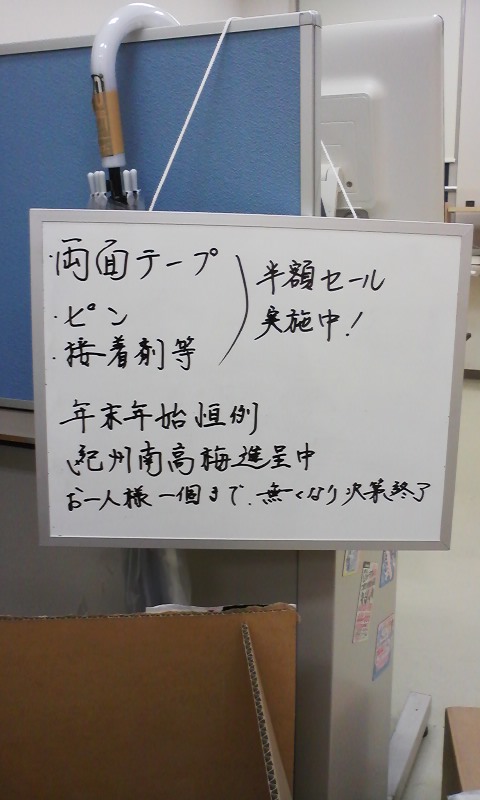 ・両面テープ
・ピン
・接着剤等
半額セール
実施中!
年末年始恒例
紀州南高梅進呈中
お一人様一個まで、無くなり次第終了